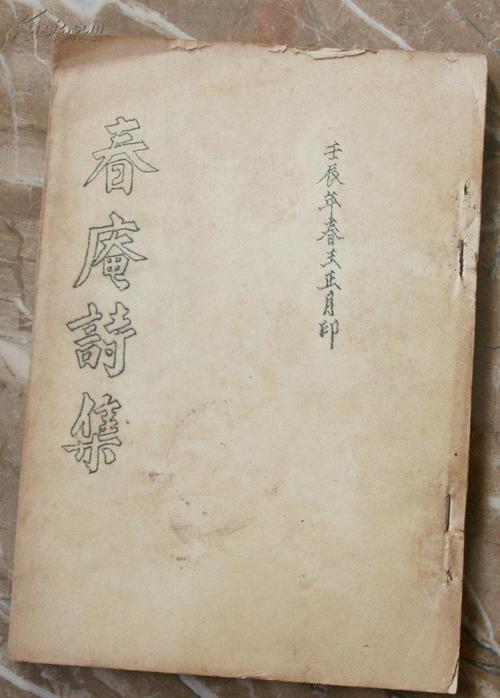 壬辰年春王正月印
春庵詩集